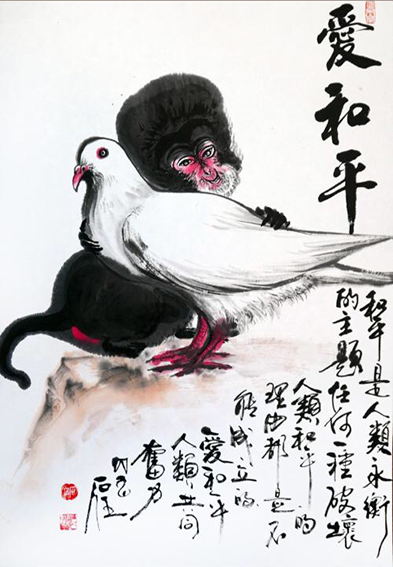 愛和平
和平是人類永衡
的主題任何一種破壞
人類和平的
理由都是不
能成立的
愛和平
人類共同
奮力